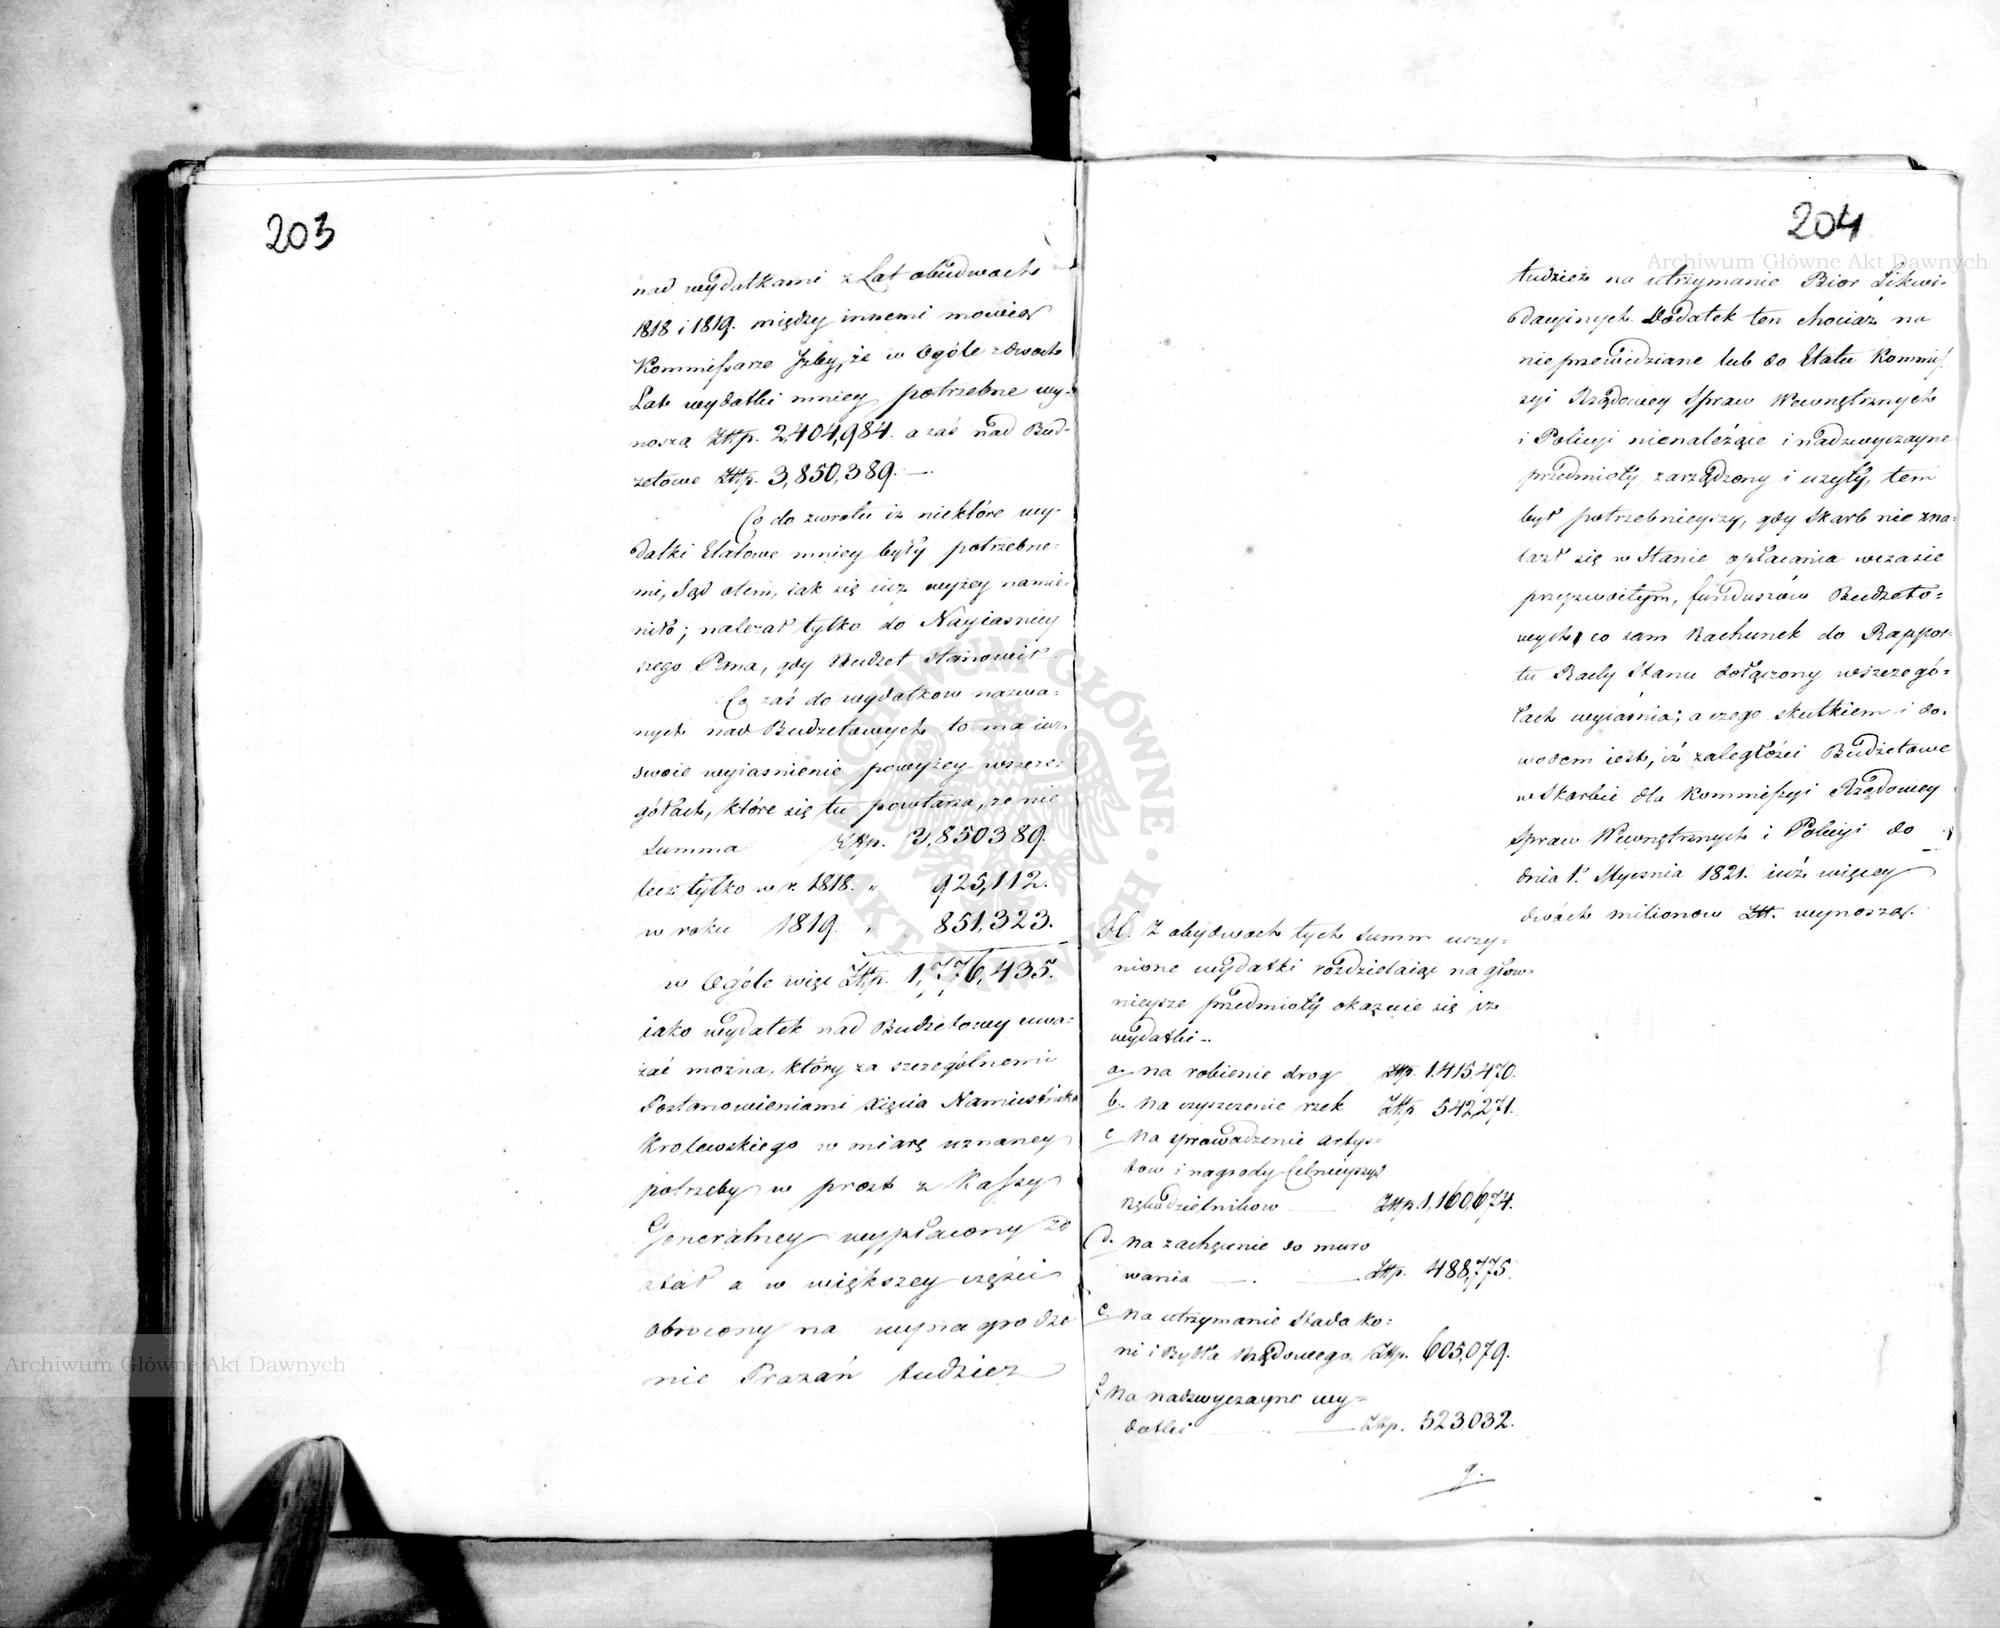 203
nad wydatkami z Lat obudwoch
1818 i 1819. między innemi mowią
Kommissarze Izby, że w Ogóle z dwoch
Lat wydatki mniey potrzebne wy-
noszą Złłp. 2,404,984. a zaś nad Bud-
żetowe Złłp. 3,850,389. —
Co do zwrotu iż niektóre wy-
datki Etatowe mniey były potrzebne-
mi, Sąd otem, iak się iuż wyżey namie-
niło; należał tylko do Nayiasniey
szego Pana, gdy Budżet stanowił.
Co zaś do wydatkow nazwa-
nych nad Budżetowych to ma iuż
swoie wyiasnienie powyżey wszcze-
gółach, które się tu powtarza, że nie
Summa Złłp. 3,850389.
lecz tylko w r. 1818. " 925,112.
w roku 1819. " 851,323.
w Ogóle więc Złłp. 1,776,435.
iako wydatek nad Budżetowy uwa-
żać można, który za szczególnemi
Postanowieniami Xięcia Namiestnika
Krolewskiego w miarę uznaney
potrzeby w prost z Kassy
Generalney wypłacony zo
stał a w większey części
obrocony na wynagrodze
nie Prażań tudzież
204
tudzież na utrzymanie Bior Likwi-
dacyinych. Dodatek ten chociaż na
nieprzewidziane lub do Etatu Kommis
syi Rządowey Spraw Wewnętrznych
i Policyi nienależące i nadzwyczayne
przedmioty zarządzony i użyty, tem
był potrzebnieyszy, gdy Skarb nie zna-
lazł się w Stanie opłacania wczasie
przyzwoitym, funduszów Budżeto-
wych, co sam Rachunek do Rappor-
tu Rady Stanu dołączony wszczegó-
łach wyiasnia; a czego skutkiem i do-
wodem iest, iż zaległości Budżetowe
w Skarbie dla Kommissyi Rządowey
Spraw Wewnętrznych i Policyi do
dnia 1. Stycznia 1821. iuż więcey
dwóch milionow Złł. wynoszą.
Z obydwoch tych Summ uczy-
nione wydatki rozdzielaiąc na głow-
nieysze przedmioty okazuie się iż
wydatki -
a. na robienie drog Złłp. 1.415.470.
b. na czyszczenie rzek Złłp. 542,271.
c. na sprowadzenie artys-
tow i nagrody Celnieyszych
Rękodzielnikow — Złłp. 1,160,674.
d. na zachęcenie do muro
wania — Złłp. 488,775.
e. na utrzymanie Stada ko-
ni i Bydła Rządowego Złłp. 605,079.
f. na nadzwyczayne wy-
datki — Złłp. 523,032.
g.
Archiwum Główne Akt Dawnych
Archiwum Główne Akt Dawnych